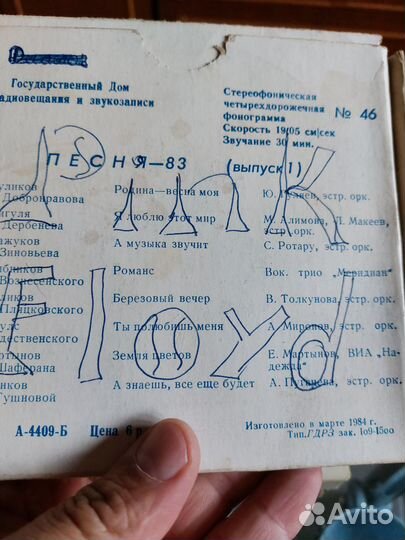 Государственный Дом
радиовещания и звукозаписи
Стереофоническая
четырехдорожечная
фонограмма
Скорость 19,05 см|сек
Звучание 30 мин.
№ 46
ПЕСНЯ—83 (выпуск 1)
Добронравова Родина—весна моя Ю. эстр. орк.
Дербенева Я люблю этот мир М. Алимова, Л. Макеев, эстр. орк.
Зиновьева А музыка звучит С. Ротару, эстр. орк.
Вознесенского Романс Вок. трио „Меридиан"
Пляцковского Березовый вечер В. Толкунова, эстр. орк.
дественского Ты полюбишь меня А. Миронов, эстр. орк.
Шаферана Земля цветов Е. Мартынов, ВИА „Надежда"
А знаешь, все еще будет А. Пугачева, эстр. орк.
А-4409-Б Цена 6 р
Изготовлено в марте 1984 г.
Тип. ГДРЗ зак. 109-1500
Floyd
Avito